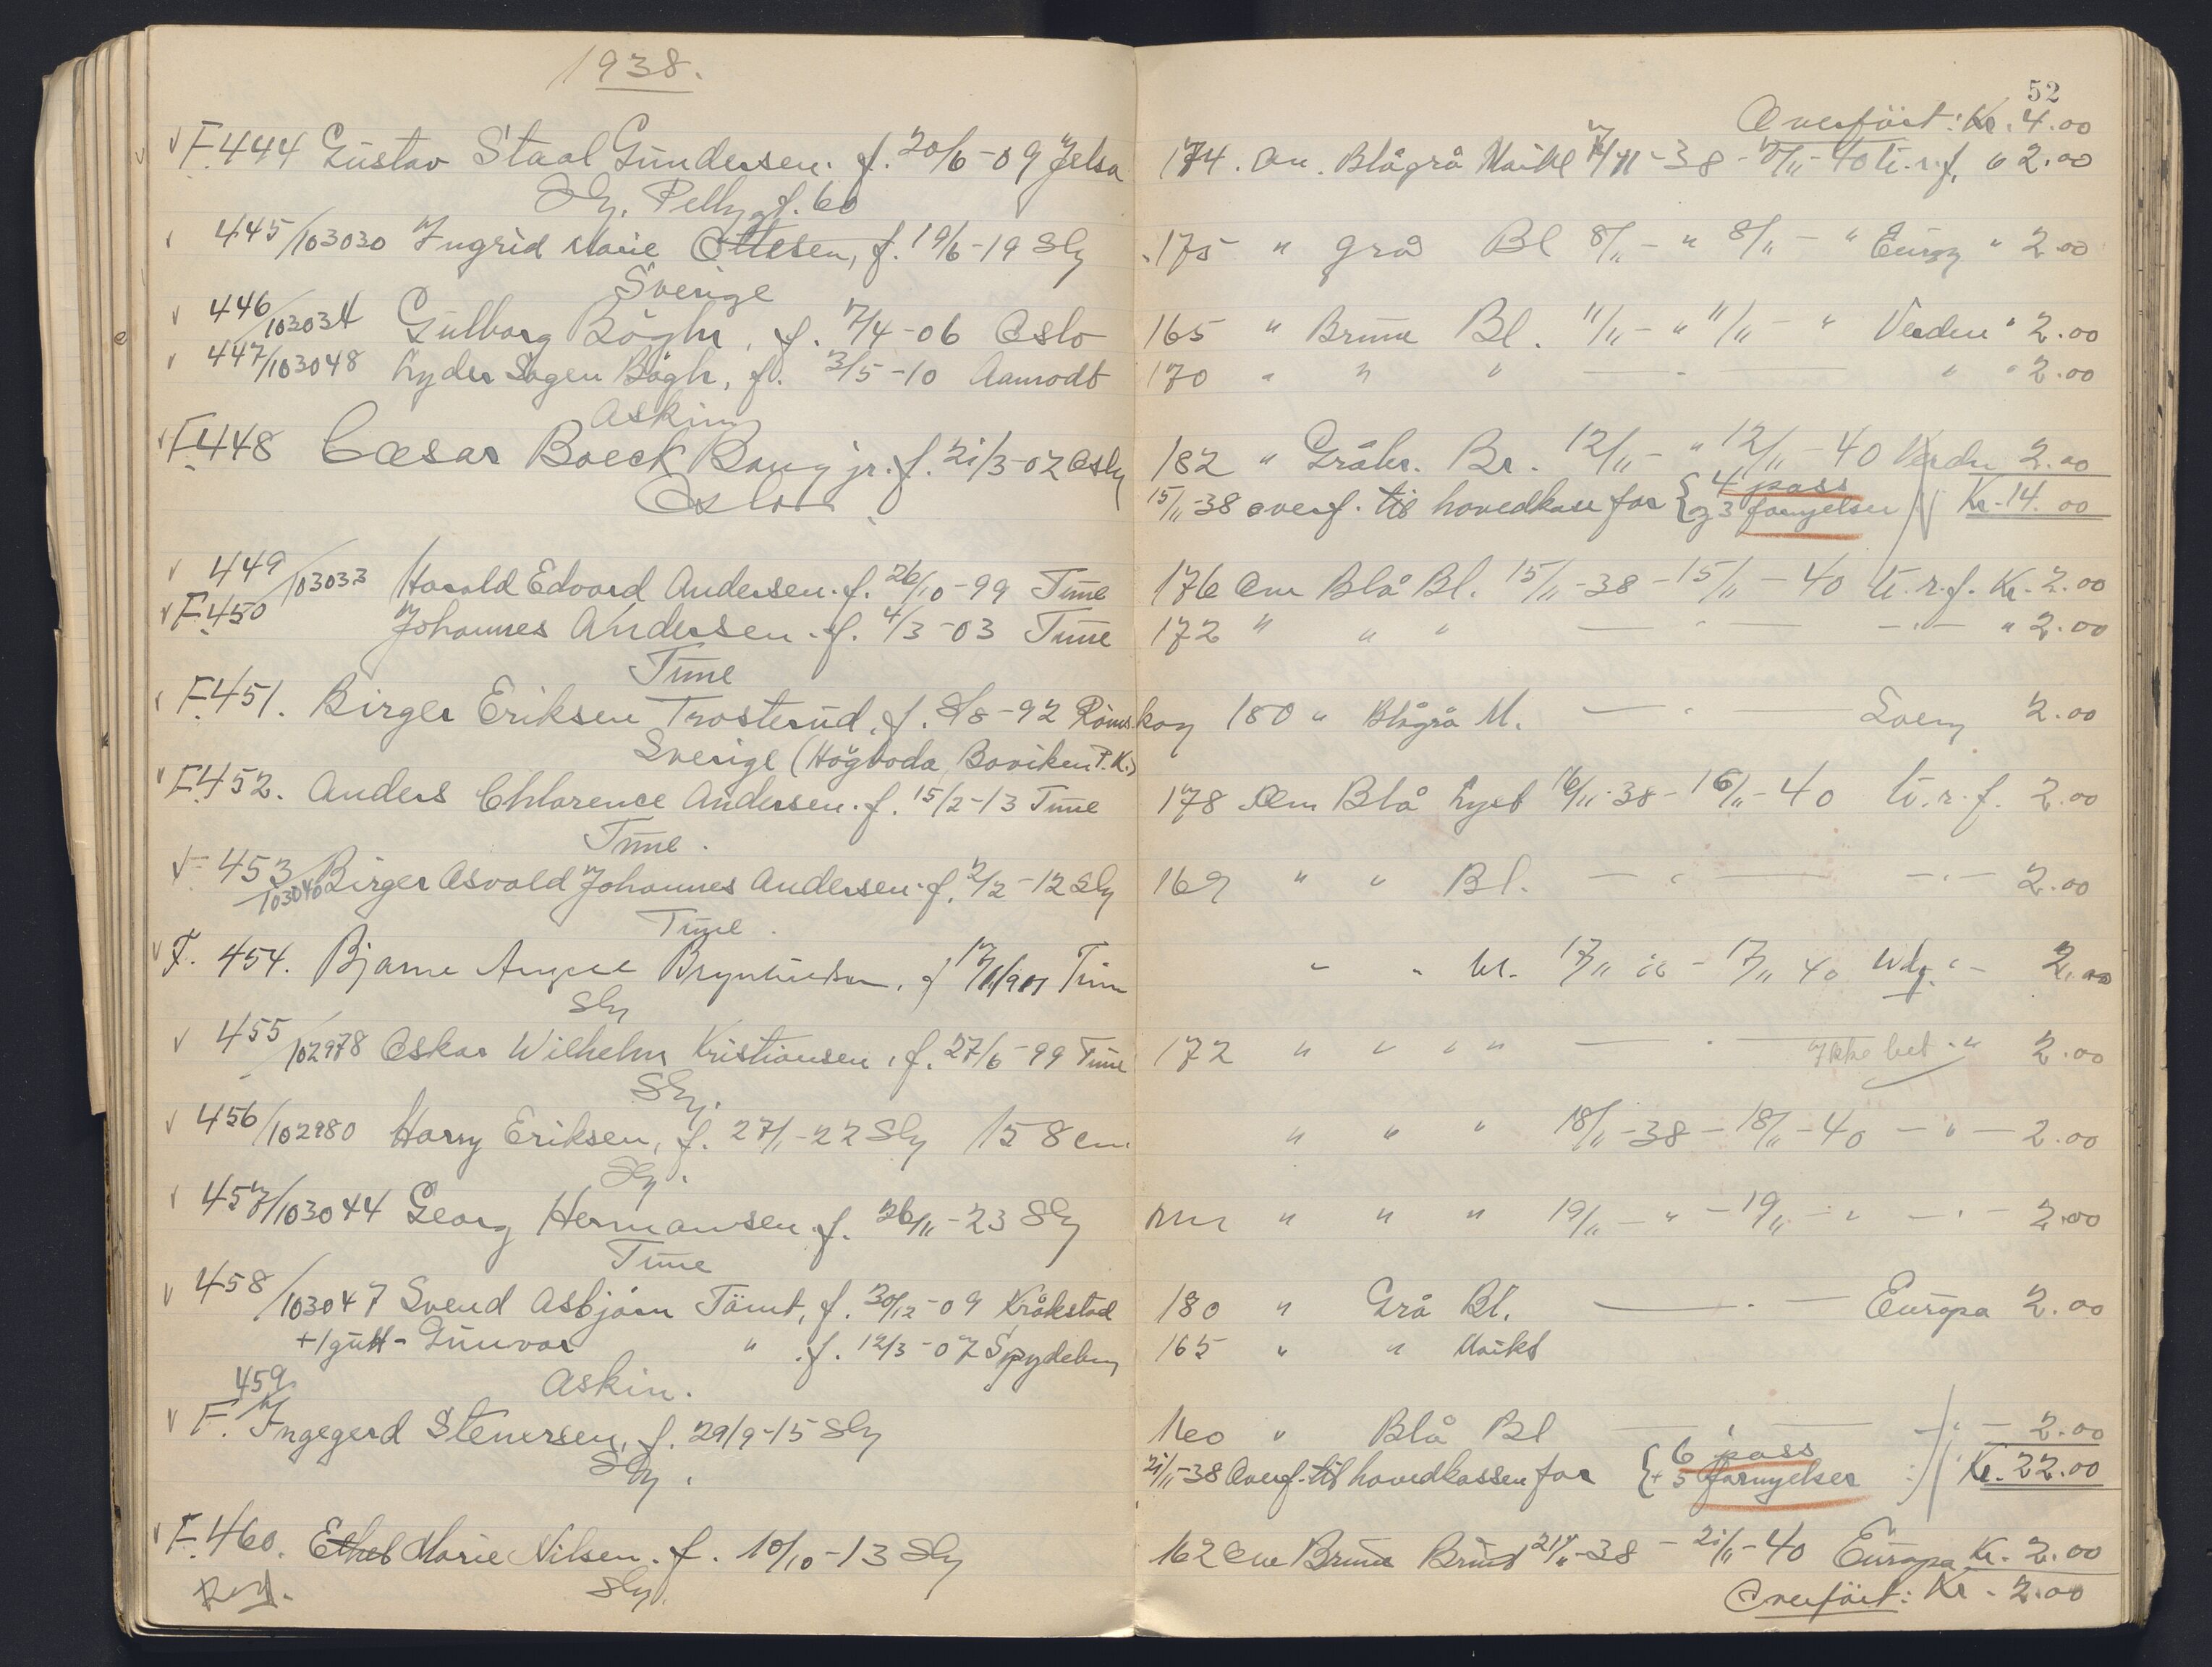 1938.
52
Overført: Kr. 4.00
F. 444 Gustav Staal Gundersen. f. 20/6-09 Jelsa 174. cm. Blågrå Mörkt 7/11-38 - 7/11-40 ti. r. f. " 2.00
445/103030 Ingrid Marie Ottesen, f. 19/6-19 175 " grå Bl 8/11 - " 8/11 - " " 2.00
Sverige
446/103034 Gulborg Bögh, f. 7/4-06 Oslo 165 " Brune Bl. 11/11 - " 11/11 - " Verden " 2.00
447/103048 Lyder Sagen Bögh, f. 3/5-10 170 " " " — " — " " 2.00
Askim
F. 448 Cæsar Boeck Bang jr. f. 21/3-02 Oslo 182 " Gråbr. Br. 12/11 - " 12/11-40 Verden 2.00
Oslo
15/11-38 overf. til hovedkasse for { 4 pass
og 3 fornyelser Kr. 14.00
449/103033 Harald Edvard Andersen. f. 26/10-99 Tune 176 cm Blå Bl. 15/11-38 - 15/11-40 ti. r. f. Kr. 2.00
F. 450 Johannes Andersen. f. 4/3-03 Tune 172 " " " — " — - " - " 2.00
Tune
F. 451. Birger Eriksen Trosterud, f. 8/8-92 Römskog 180 " Blågrå M. — " — 2.00
Sverige (Högboda, Boviken P.K.)
F. 452. Anders Chlarence Andersen. f. 15/2-13 Tune 178 cm Blå Lyst 16/11-38 - 16/11-40 ti. r. f. 2.00
Tune.
453/103040 Birger Asvald Johannes Andersen. f. 2/2-12 169 " " Bl. — " — - " - 2.00
Tune.
F. 454. Bjarne 17/11 - 17/11 40 2.00
455/102978 Oskar Wilhelm Kristiansen, f. 27/6-99 Tune 172 " " " " — " — Ikke bet. " 2.00
456/102980 Harry Eriksen, f. 27/1-22 158 cm " " " 18/11-38 - 18/11-40 - " - 2.00
457/103044 Georg Hermansen. f. 26/11-23 " " " 19/11 - " - 19/11 - " - " - 2.00
Tune
458/103047 Svend Asbjörn Tömt, f. 30/12-09 Kråkstad 180 " Grå Bl. — " — Europa 2.00
+ 1 gutt - Gunvor " f. 12/3-07 165 " " Mörkt
Askim.
459
F. Ingegerd Stenersen, f. 29/9-15 160 " Blå Bl — " — - " - 2.00
21/11-38 Overf. til hovedkassen for { 6 pass
+ 5 fornyelser Kr. 22.00
F. 460. Ethel Marie Nilsen. f. 10/10-13 162 cm Brune Brunt 21/11-38 - 21/11-40 Europa Kr. 2.00
Overført: Kr. 2.00